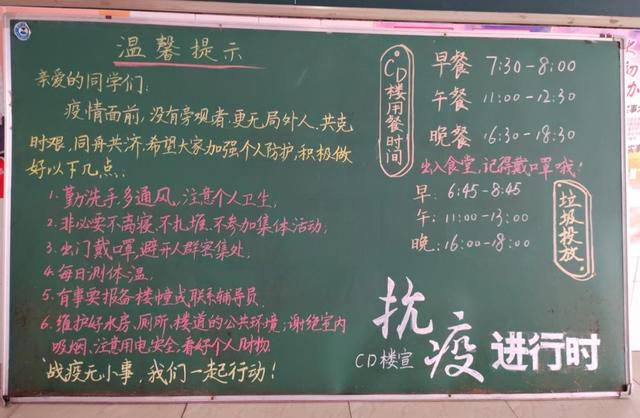 温馨提示
亲爱的同学们:
疫情面前,没有旁观者,更无局外人.共克
时艰,同舟共济,希望大家加强个人防护,积极做
好以下几点.
1.勤洗手,多通风,注意个人卫生,
2.非必要不离寝,不扎堆,不参加集体活动;
3.出门戴口罩,避开人群密集处,
4.每日测体温.
5.有事要报备楼幢或联系辅导员.
6.维护好水房、厕所、楼道的公共环境;谢绝室内
吸烟,注意用电安全,看好个人财物
战疫无小事,我们一起行动!
CD楼用餐时间
早餐 7:30-8:00
午餐 11:00-12:30
晚餐 16:30-18:30
出入食堂,记得戴口罩哦!
垃圾投放
早: 6:45-8:45
午: 11:00-13:00
晚: 16:00-18:00
抗疫进行时
CD楼宣